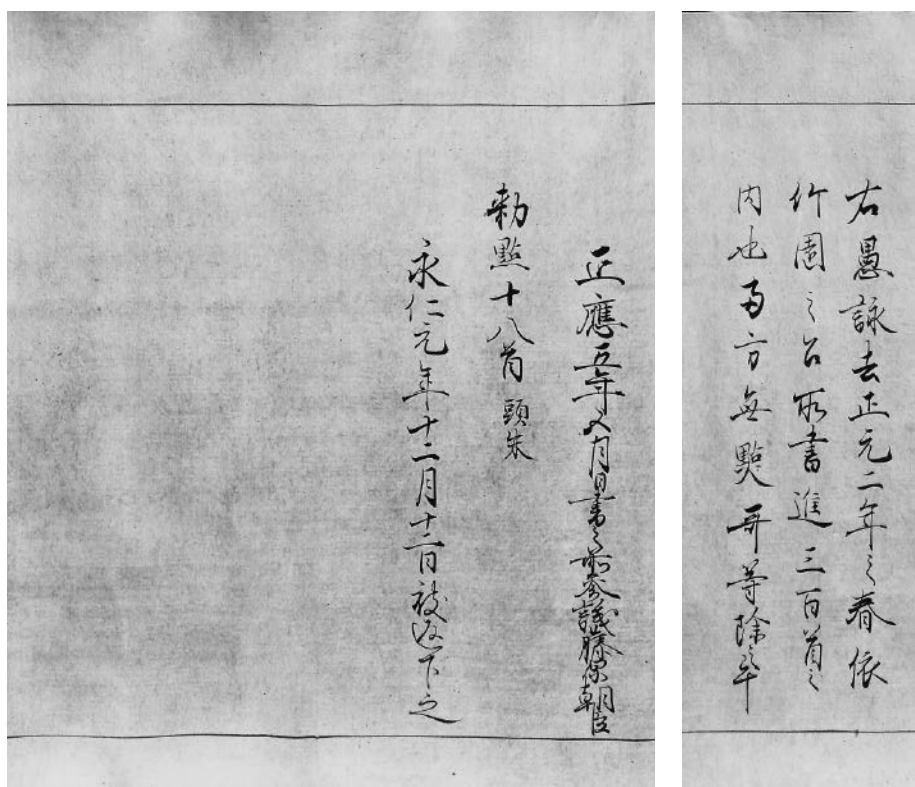 右愚詠去正元二年之春依
竹園之召所書進三百首之
内也両方無點哥等除之畢
正應五年五月日書之前参議藤保朝臣
勅點十八首 頭朱
永仁元年十二月十二日被返下之